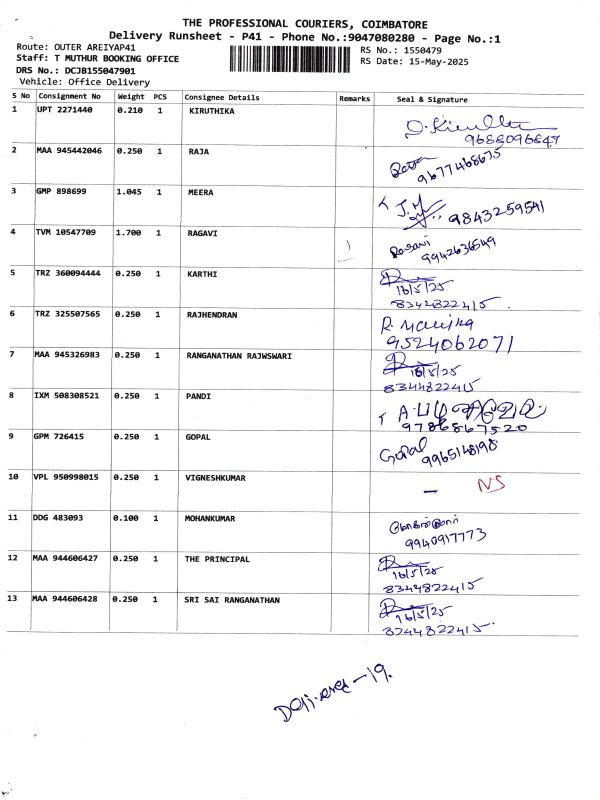 THE PROFESSIONAL COURIERS, COIMBATORE
Delivery Runsheet - P41 - Phone No.:9047080280 - Page No.:1
Route: OUTER AREIYAP41
RS No.: 1550479
Staff: T MUTHUR BOOKING OFFICE
RS Date: 15-May-2025
DRS No.: DCJB155047901
Vehicle: Office Delivery
S No Consignment No Weight PCS Consignee Details Remarks Seal & Signature
1 UPT 2271440 0.210 1 KIRUTHIKA
9688096847
2 MAA 945442046 0.250 1 RAJA
9677468675
3 GMP 898699 1.045 1 MEERA
9843259541
4 TVM 10547709 1.700 1 RAGAVI
Ragavi
9942636549
5 TRZ 360094444 0.250 1 KARTHI
16/5/25
8344822415
6 TRZ 325507565 0.250 1 RAJHENDRAN
9524062071
7 MAA 945326983 0.250 1 RANGANATHAN RAJWSWARI
16/5/25
8344822415
8 IXM 508308521 0.250 1 PANDI
9786867520
9 GPM 726415 0.250 1 GOPAL
Gopal
9965148198
10 VPL 950998015 0.250 1 VIGNESHKUMAR
– NS
11 DDG 483093 0.100 1 MOHANKUMAR
9940917773
12 MAA 944606427 0.250 1 THE PRINCIPAL
16/5/25
8344822415
13 MAA 944606428 0.250 1 SRI SAI RANGANATHAN
16/5/25
8244822415
-19.